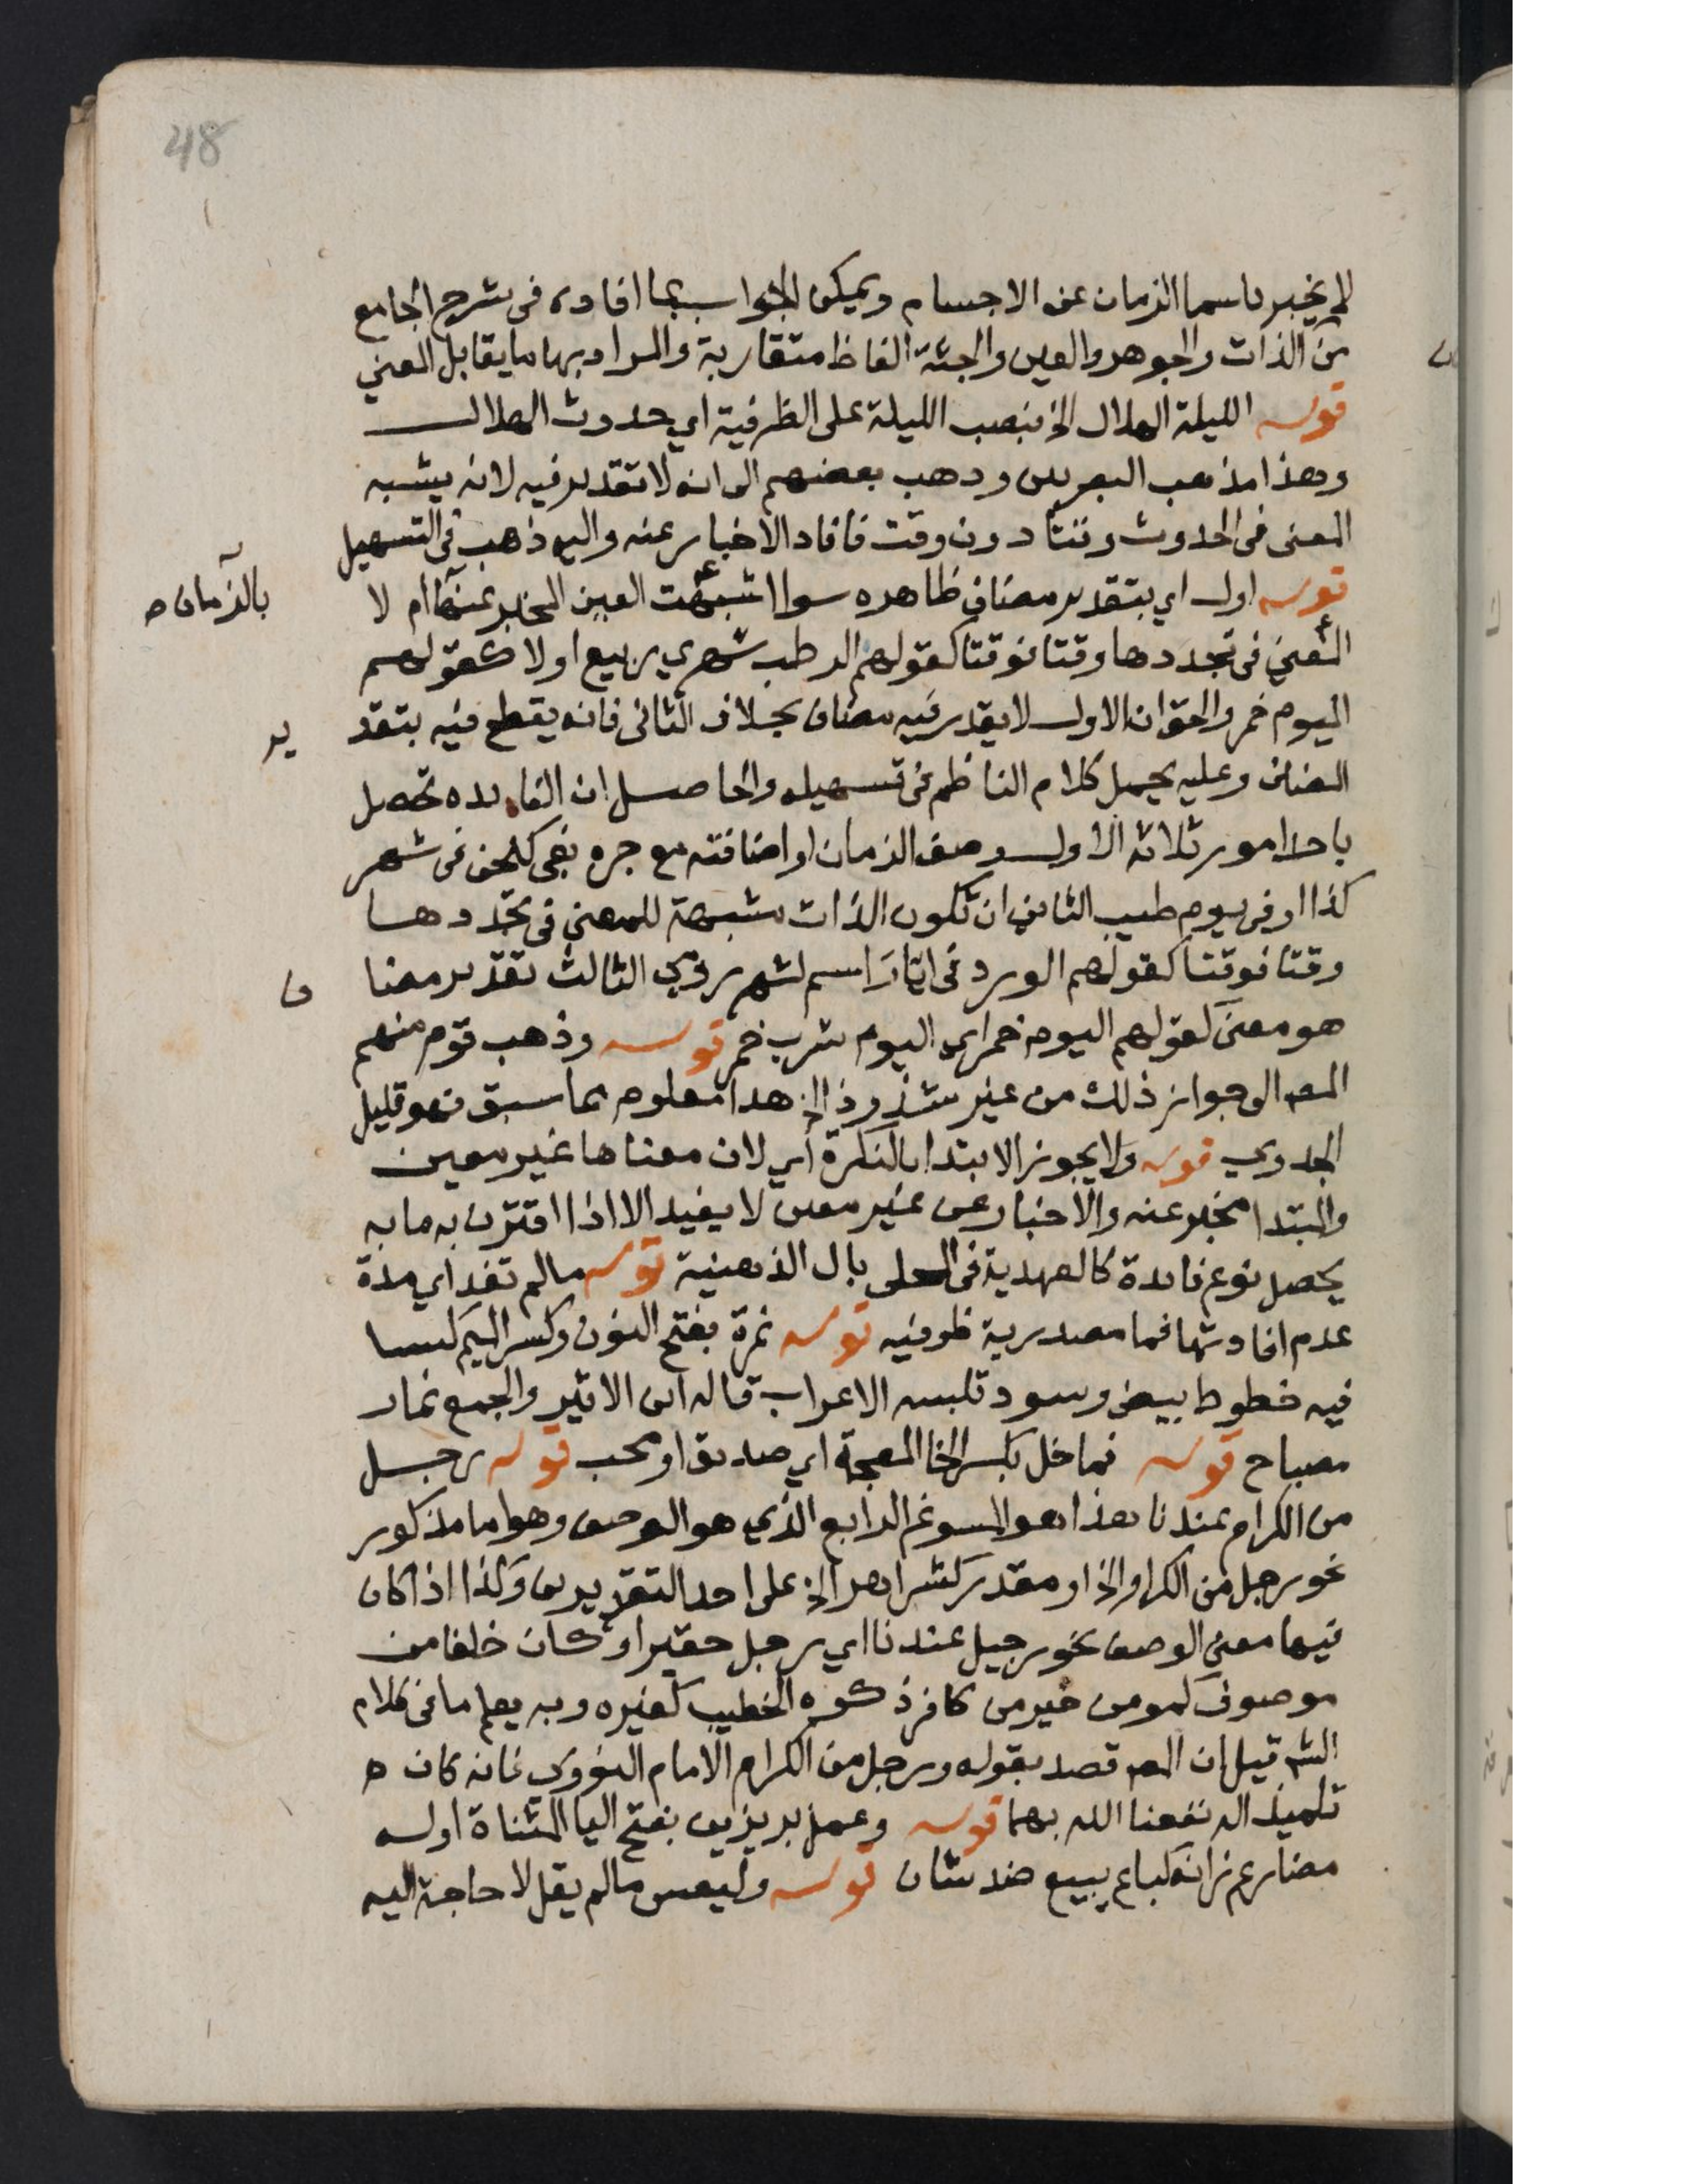 48
لا يخبر باسما الزمان عن الاجسام ويمكن الجواب بما افاده فى شرح الجامع
من الذات والجوهر والعين والجثة الفاظ متقاربة والمراد بها ما يقابل المعني
قوله الليلة الهلال الخ بنصب الليلة على الظرفية اي حدوث الهلال
وهذا مذهب البصريين وذهب بعضهم الى انه لا تقدير فيه لانه يشبه
المعنى فى الحدوث وقتا دون وقت فافاد الاخبار عنه واليه ذهب فى التسهيل
قوله اول اي بتقدير مضاف ظاهره سوا اشبهت العين المخبر عنها ام لا
بالزمان صح
المعني فى تجددها وقتا فوقتا كقولهم الرطب شهري ربيع اولا كقولهم
اليوم خمر والحق ان الاول لا يقدر فيه مضاف بخلاف الثانى فانه يقطع فيه بتقد
ير
المضاف وعليه يحمل كلام الناظم فى تسهيله والحاصل ان الفايده تحصل
باحد امور ثلاثه الاول وصف الزمان او اضافته مع جره بفى كنحن فى شهر
كذا او فى يوم طيب الثاني ان تكون الذات مشبهة للمعني فى تجددها
وقتا فوقتا كقولهم الورد فى ايار اسم لشهر رومي الثالث تقدير مضا
ف
هو معنى كقولهم اليوم خمر اي اليوم شرب خمر قوله وذهب قوم منهم
المص الى جواز ذلك من غير شذوذ الخ هذا معلوم بما سبق فهو قليل
الجدوي قوله ولا يجوز الابتدا بالنكرة اي لان معناها غير معين
والمبتدا مخبر عنه والاخبار عن غير معين لا يفيد الا اذا اقترن به ما به
يحصل نوع فايدة كالعهدية فى المحلى بال الذهنية قوله مالم تفد اي مدة
عدم افادتها فما مصدرية ظرفيه قوله نمرة بفتح النون وكسر الميم كسا
فيه خطوط بيض وسود تلبسه الاعراب قاله ابن الاثير والجمع نمار
مصباح قوله فما خل بكسر الخا المعجمة اي صديق او محب قوله رجل
من الكرام عندنا هذا هو المسوغ الرابع الذي هو الوصف وهو اما مذكور
نحو رجل من الكرام الخ او مقدر كشر اهر الخ على احد التقديرين وكذا اذا كان
فيها معنى الوصف نحو رجيل عندنا اي رجل حقير او كان خلفا من
موصوف كمومن خير من كافر ذكره الخطيب كغيره وبه يعلم ما فى كلام
الشه قيل ان المص قصد بقوله ورجل من الكرام الامام النووي فانه كان
تلميذا له نفعنا الله بهما قوله وعمل بر يزين بفتح اليا المثناة اوله
مضارع زانه كباع يبيع ضد شان قوله وليقس مالم يقل لا حاجة اليه